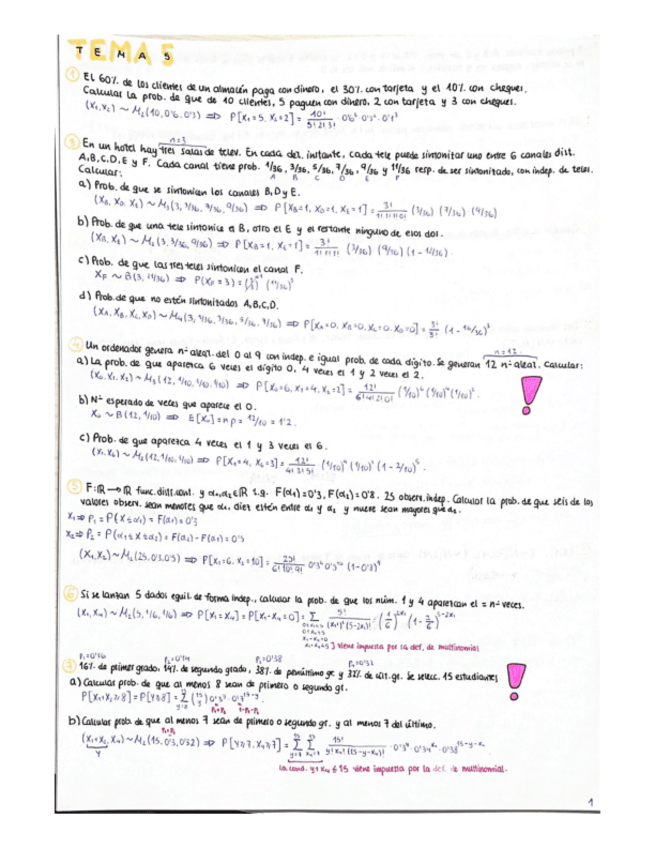 TEMA 5
① El 60% de los clientes de un almacén paga con dinero, el 30% con tarjeta y el 10% con cheques.
Calcular la prob. de que de 10 clientes, 5 paguen con dinero, 2 con tarjeta y 3 con cheques.
(X₁,X₂) ~ M₂(10,0'6,0'3) ⇒ P[X₁=5, X₂=2] = 10!/(5!2!3!) · 0'6⁵ · 0'3² · 0'1³
n=3
③ En un hotel hay tres salas de telev. En cada det. instante, cada tele puede sintonitar uno entre 6 canales dist.
A,B,C,D,E y F. Cada canal tiene prob. 1/36, 3/36, 5/36, 7/36, 9/36 y 11/36 resp. de ser sintonitado, con indep. de teles.
A B C D E F
Calcular:
a) Prob. de que se sintonicen los canales B,D y E.
(X_B, X_D, X_E) ~ M₃(3, 3/36, 7/36, 9/36) ⇒ P[X_B=1, X_D=1, X_E=1] = 3!/(1!1!1!0!) (3/36) (7/36) (9/36)
b) Prob. de que una tele sintonice el B, otro el E y el restante ninguno de esos dos.
(X_B, X_E) ~ M₂(3, 3/36, 9/36) ⇒ P[X_B=1, X_E=1] = 3!/(1!1!1!) (3/36) (9/36) (1 - 12/36)
c) Prob. de que las tres teles sintonicen el canal F.
X_F ~ B(3, 11/36) ⇒
d) Prob. de que no estén sintonitados A,B,C,D.
(X_A, X_B, X_C, X_D) ~ M₄(3, 1/36, 3/36, 5/36, 7/36) ⇒ P[X_A=0, X_B=0, X_C=0, X_D=0] = 3!/3! (1 - 16/36)³
n=12
④ Un ordenador genera nº aleat. del 0 al 9 con indep. e igual prob. de cada dígito. Se generan 12 nº aleat. Calcular:
a) La prob. de que aparezca 6 veces el dígito 0, 4 veces el 1 y 2 veces el 2.
(X₀, X₁, X₂) ~ M₃(12, 1/10, 1/10, 1/10) ⇒ P[X₀=6, X₁=4, X₂=2] = 12!/(6!4!2!0!) (1/10)⁶ (1/10)⁴ (1/10)².
b) Nº esperado de veces que aparece el 0.
X₀ ~ B(12, 1/10) ⇒ E[X₀] = np = 12/10 = 1'2.
c) Prob. de que aparezca 4 veces el 1 y 3 veces el 6.
(X₁, X₆) ~ M₂(12, 1/10, 1/10) ⇒ P[X₁=4, X₆=3] = 12!/(4!3!5!) (1/10)⁴ (1/10)³ (1 - 2/10)⁵.
⑤ F: ℝ → ℝ func. dist. cont. y α₁, α₂ ∈ ℝ t.q. F(α₁)=0'3, F(α₂)=0'8. 25 observ. indep. Calcular la prob. de que seis de los
valores observ. sean menores que α₁, diez estén entre α₁ y α₂ y nueve sean mayores que α₂.
X₁ ⇒ P₁ = P(X≤α₁) = F(α₁) = 0'3
X₂ ⇒ P₂ = P(α₁≤X≤α₂) = F(α₂) - F(α₁) = 0'5
(X₁,X₂) ~ M₂(25,0'3,0'5) ⇒ P[X₁=6, X₂=10] = 25!/(6!10!9!) 0'3⁶ 0'5¹⁰ (1-0'8)⁹
⑥ Si se lanzan 5 dados equil. de forma indep., calcular la prob. de que los núm. 1 y 4 aparezcan el = nº veces.
(X₁, X₄) ~ M₂(5, 1/6, 1/6) ⇒ P[X₁=X₄] = P[X₁-X₄=0] = Σ 5!/((X₁!)²(5-2X₁)!) (1/6)^2X₁ (1-2/6)^5-2X₁
viene impuesta por la def. de multinomial
P₁=0'16 P₂=0'14 P₃=0'38 P₄=0'32
16% de primer grado, 14% de segundo grado, 38% de penúltimo gr. y 32% de últ. gr. Se selecc. 15 estudiantes
a) Calcular prob. de que al menos 8 sean de primero o segundo gr.
P[X₁+X₂≥8] = P[Y≥8] = Σ (15 y) 0'3^y · 0'7^15-y.
P₁+P₂ 1-P₁-P₂
b) Calcular prob. de que al menos 7 sean de primero o segundo gr. y al menos 7 del último.
P₁+P₂
(X₁+X₂, X₄) ~ M₂(15, 0'3, 0'32) ⇒ P[Y≥7, X₄≥7] = Σ Σ 15!/(y! X₄! (15-y-X₄)!) · 0'3^y · 0'38^15-y-X₄
Y
la cond. y+X₄≤15 viene impuesta por la def. de multinomial.
1